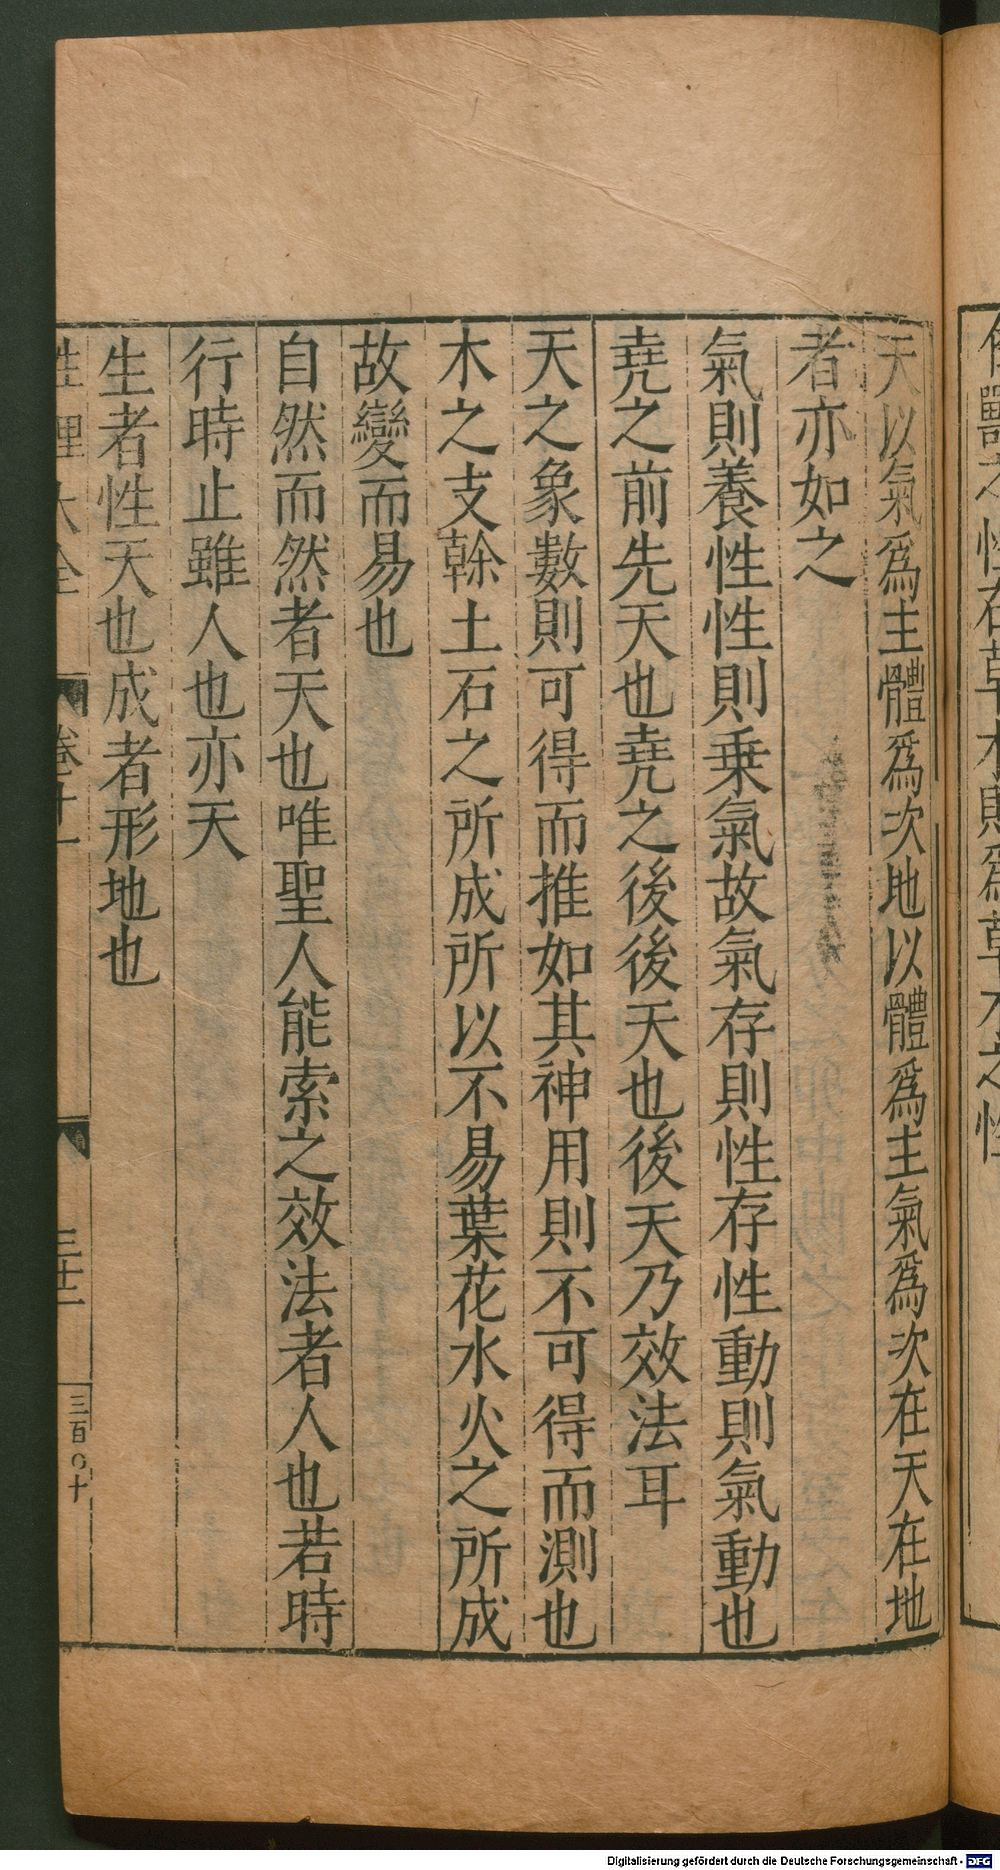 天以氣爲主體爲次地以體爲主氣爲次在天在地
者亦如之
氣則養性性則乗氣故氣存則性存性動則氣動也
堯之前先天也堯之後後天也後天乃效法耳
天之象數則可得而推如其神用則不可得而測也
木之支榦土石之所成所以不易葉花水火之所成
故變而易也
自然而然者天也唯聖人能索之效法者人也若時
行時止雖人也亦天
生者性天也成者形地也
性理大全 卷十一 三十二 三百〇十
Digitalisierung gefördert durch die Deutsche Forschungsgemeinschaft - DFG